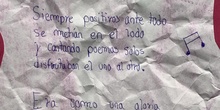 Siempre positivos ante todo
se metían en el lodo
y cantando poemas solos
disfrutaban el uno al otro.
Era
una gloria